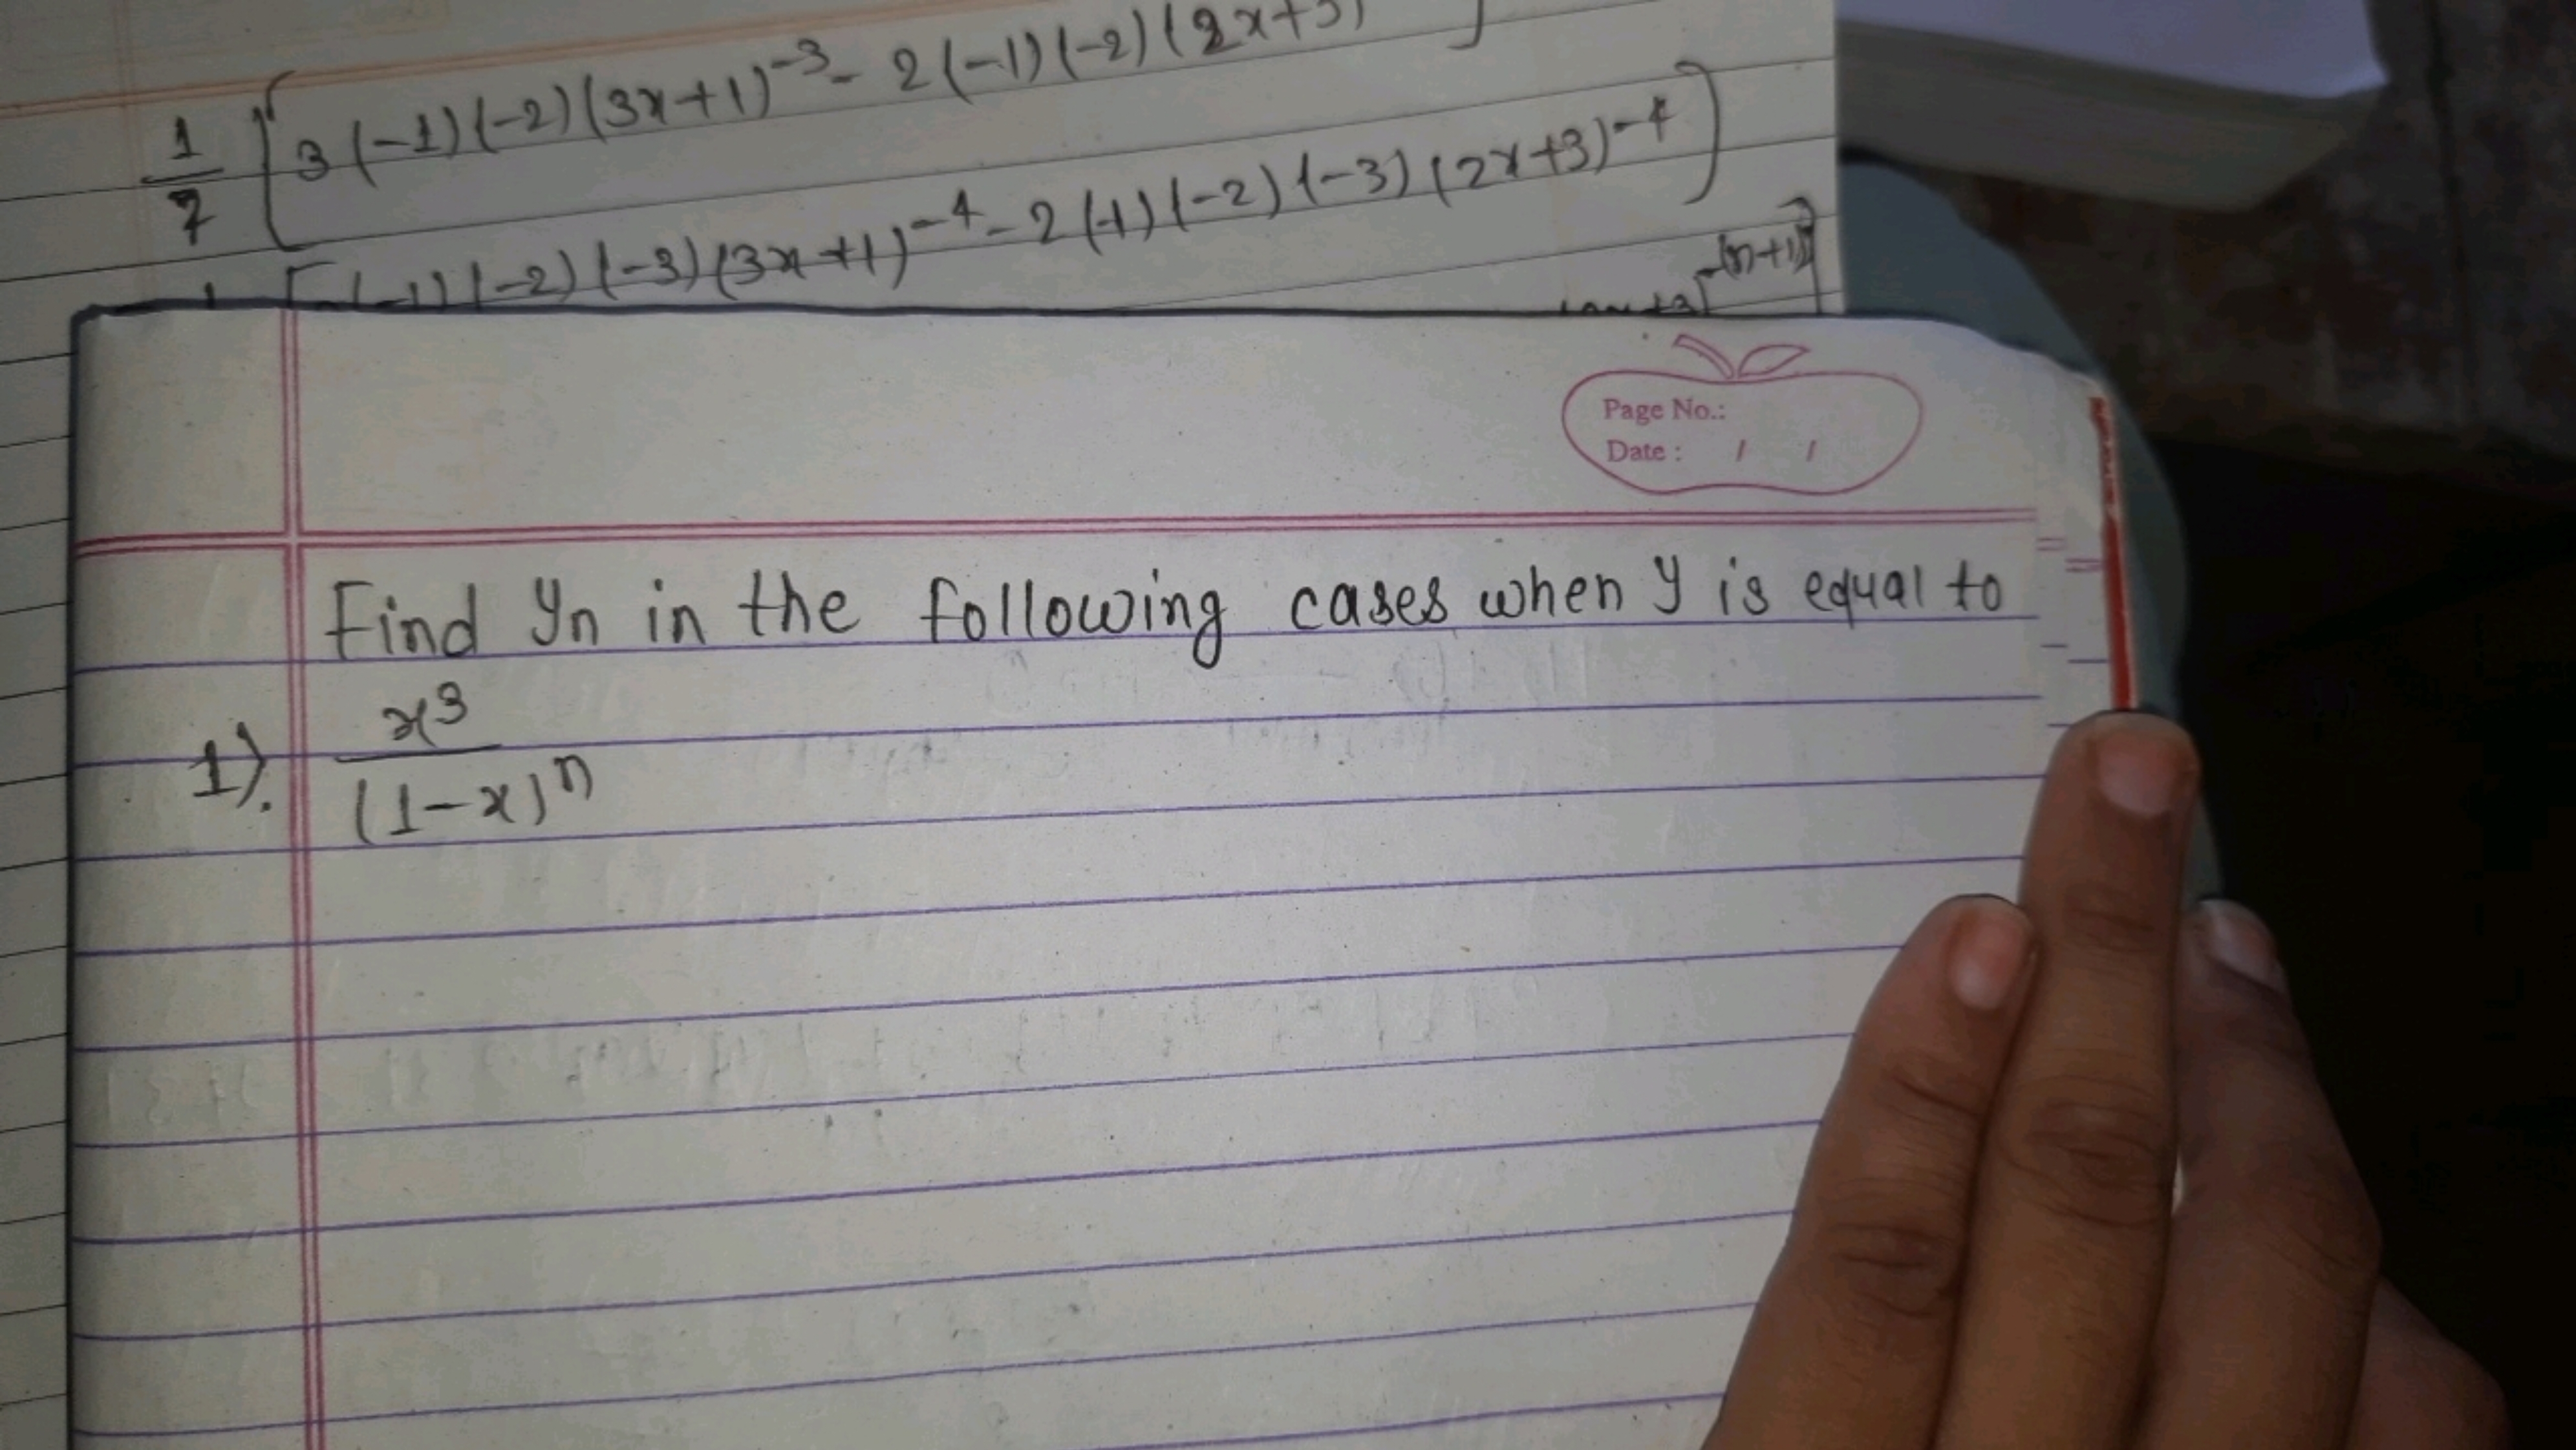 1/7 [3(-1)(-2)(3x+1)^-3 - 2(-1)(-2)(2x+3)
(-1)(-2)(-3)(3x+1)^-4 - 2(-1)(-2)(-3)(2x+3)^-4)
-(n+1)]
Page No.:
Date : / /
Find yn in the following cases when y is equal to
1). x^3/(1-x)^n